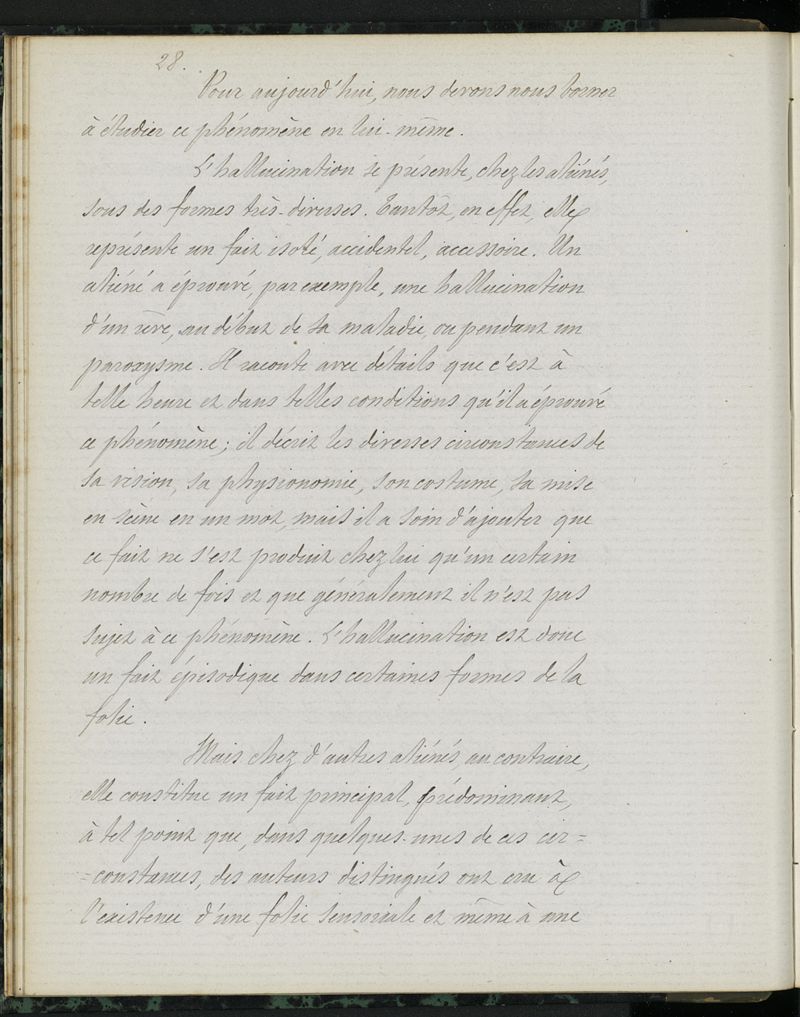 28.
Pour aujourd'hui, nous devons nous borner
à étudier ce phénomène en lui-même.
L'hallucination se présente, chez les aliénés,
sous des formes très-diverses. Tantôt, en effet, elle
représente un fait isolé, accidentel, accessoire. Un
aliéné a éprouvé, par exemple, une hallucination
d'un rêve, au début de sa maladie, ou pendant un
paroxysme. Il raconte avec détails que c'est à
telle heure et dans telles conditions qu'il a éprouvé
ce phénomène; il décrit les diverses circonstances de
sa vision, sa physionomie, son costume, sa mise
en scène en un mot, mais il a soin d'ajouter que
ce fait ne s'est produit chez lui qu'un certain
nombre de fois et que généralement il n'est pas
sujet à ce phénomène. L'hallucination est donc
un fait épisodique dans certaines formes de la
folie.
Mais chez d'autres aliénés, au contraire,
elle constitue un fait principal, prédominant,
à tel point que, dans quelques-unes de ces cir=
=constances, des auteurs distingués ont cru à
l'existence d'une folie sensoriale et même à une